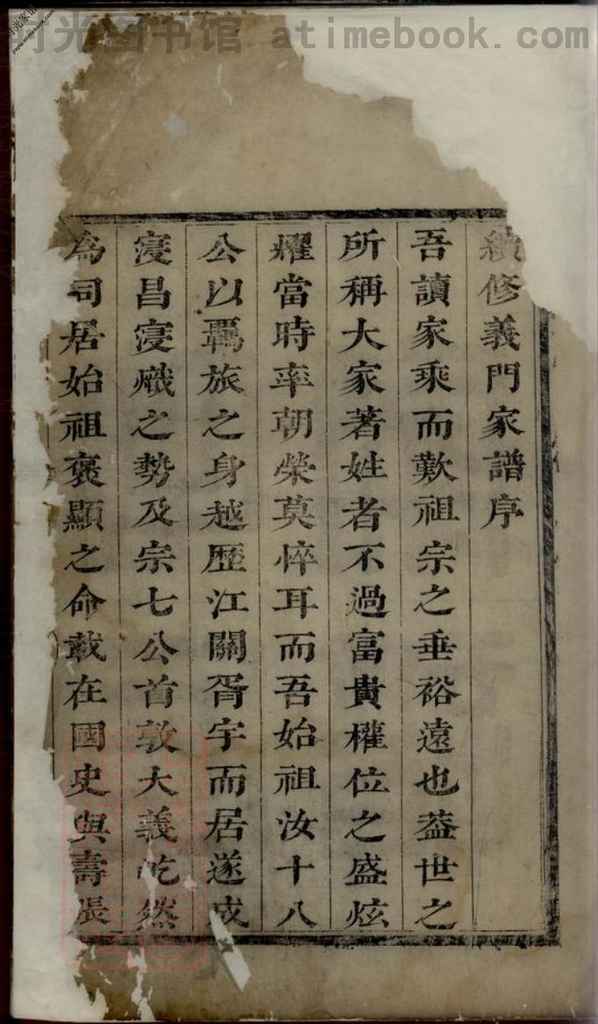 时光图书馆 atimebook.com
續修義門家譜序
吾讀家乘而歎祖宗之垂裕遠也葢世之
所稱大家著姓者不過富貴權位之盛炫
燿當時率朝榮莫悴耳而吾始祖汝十八
公以羈旅之身越歷江關胥宇而居遂成
寖昌寖熾之勢及宗七公首敦大義屹然
為同居始祖褒顯之命載在國史與壽張